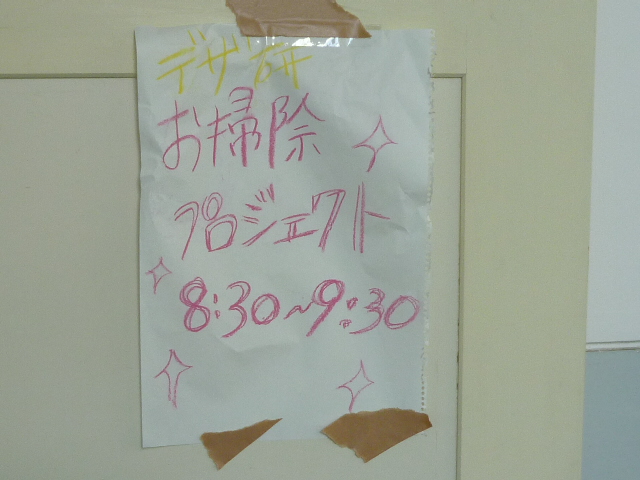 デザ研
お掃除
プロジェクト
8:30~9:30